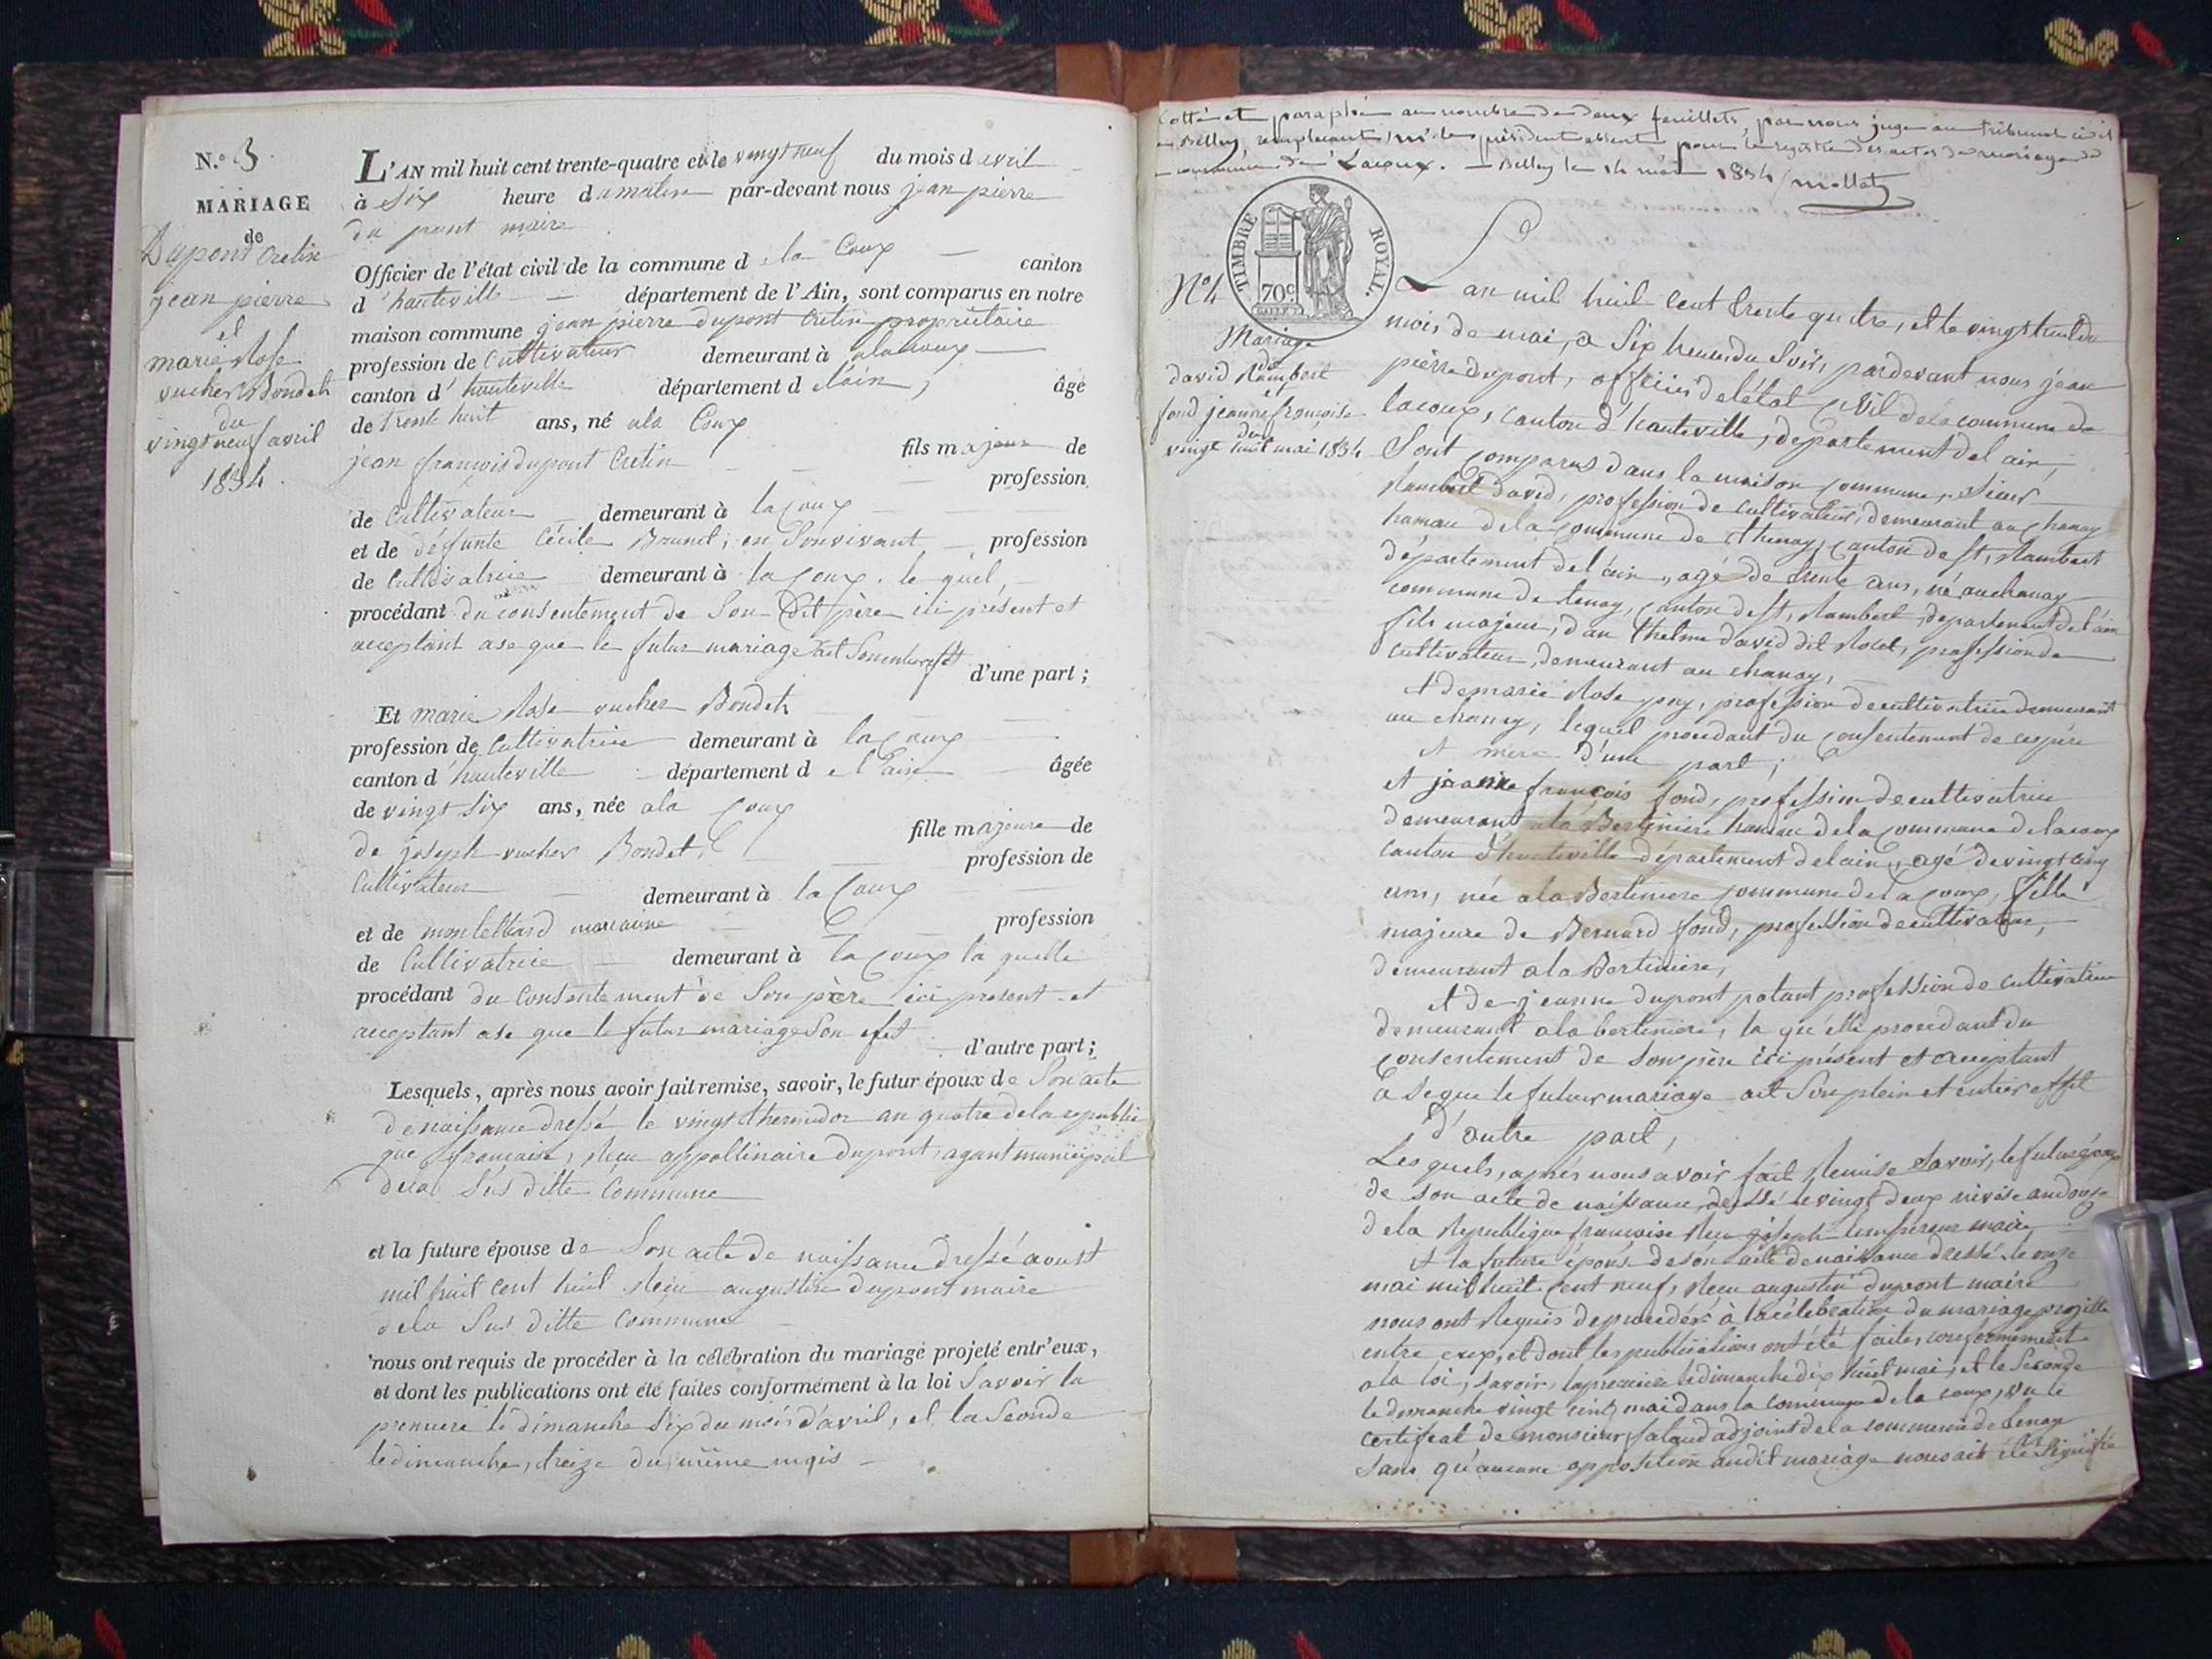 N.o 3.
MARIAGE
de
Dupont Cretin
jean pierre
et
marie Rose
vucher Bondet
du
vingt neuf avril
1834.
L'AN mil huit cent trente-quatre et le vingt neuf du mois d avril
à six heure du matin par-devant nous jean pierre
du pont maire
Officier de l'état civil de la commune d la Coux canton
d'hauteville département de l'Ain, sont comparus en notre
maison commune jean pierre dupont Cretin propriétaire
profession de Cultivateur demeurant à alacoux
canton d'hauteville département d l'ain, âgé
de trente huit ans, né ala Coux
fils majeur de
jean françois dupont Cretin
profession
de Cultivateur demeurant à la Coux
et de déffunte Cécile Brunet, en Sonvivant profession
de Cultivatrice demeurant à la Coux. le quel,
procédant du consentement de Son Dit père ici présent et
acceptant ase que le futur mariage ait
d'une part ;
Et marie Rose vucher Bondet
profession de Cultivatrice demeurant à la Coux
canton d'hauteville département d e l'ain âgée
de vingt six ans, née ala Coux
fille majeure de
de joseph vucher Bondet,
profession de
Cultivateur demeurant à la Coux
et de montelliard profession
de Cultivatrice demeurant à la Coux la quelle
procédant du Consentement de Son père ici présent et
acceptant ase que le futur mariage Son efet
d'autre part ;
Lesquels, après nous avoir fait remise, savoir, le futur époux de Son acte
de naissance dressé le vingt thermidor an quatre de la republi
que francaise, Recu appollinaire dupont, agant municipal
dela Sus ditte Commune
et la future épouse de Son acte de naissance dressé aoust
mil huit cent huit Reçu augustin dupont maire
dela Sus ditte Commune
nous ont requis de procéder à la célébration du mariage projeté entr'eux,
et dont les publications ont été faites conformément à la loi Savoir la
premiere le dimanche Six du mois d'avril, et la Seconde
le dimanche, treize du même mois
Cotté et paraphé au nombre de deux feuillets, par nous juge au tribunal civil
de Belley remplacant Mr le président absent pour le registre des actes de mariage de
la commune de Lacoux. - Belley le 14 mai 1834
TIMBRE ROYAL.
70c
No 4
Mariage
de
david Rambert
et
fond jeanne françoise
du
vingt huit mai 1834
L'an mil huit cent trente quatre, et le vingt huit du
mois de mai, a Six heures du Soir, pardevant nous jean
pierre dupont, officier de létat Civil de la commune de
lacoux, canton d'hauteville, departement del ain,
Sont Comparus dans la maison Commune, Sieur
Rambert david, profession de cultivateur, demeurant au chanay
hamau dela Commune de thenay, Canton de St, Rambert
département del'ain, agé de trente ans, né au chanay
commune de tenay, Canton de St, Rambert, departement de l'ain
fils majeur, d'an thelme david dit Rolet, profession de
cultivateur, demeurant au chanay,
et de marie Rose pay, profession de cultivatrice demeurant
au chanay, lequel procedant du Consentement de ces père
et mere d'une part ;
et jeanne françois fond, profession de cultivatrice
demeurant ala Bertiniere hamau de la Commune de lacoux
canton d'hauteville département delain, agé de vingt cinq
ans, née ala Bertiniere Commune de la Coux, fille
majeure de Bernard fond, profession de cultivateur,
demeurant ala Bertiniere,
et de jeanne dupont potant profession de cultivatrice
demeurant ala bertiniere, la qu'elle procedant du
Consentement de Son père ici présent et acceptant
a Se que le futur mariage ait Son plein et entier effet
d'autre part,
Les quels, après nous avoir fait Remise Savoir, le futur époux
de son acte de naissance dressé le vingt deux nivose an douze
dela Republique francaise Recu joseph maire,
et la future épouse de son acte de naissance dressé le onze
mai mil huit Cent neuf, Recu augustin dupont maire
nous ont Requis de procéder à la célébration du mariage projetté
entre eux, et dont les publications ont été faites conformement
a la loi, Savoir, la premiere le dimanche dix huit mai, et le Seconde
le dimanche vingt cinq mai dans la commune de la coux, vu le
certificat de monsieur adjoint de la commune de tenay
Sans qu'aucune opposition audit mariage nous ait été Signifié